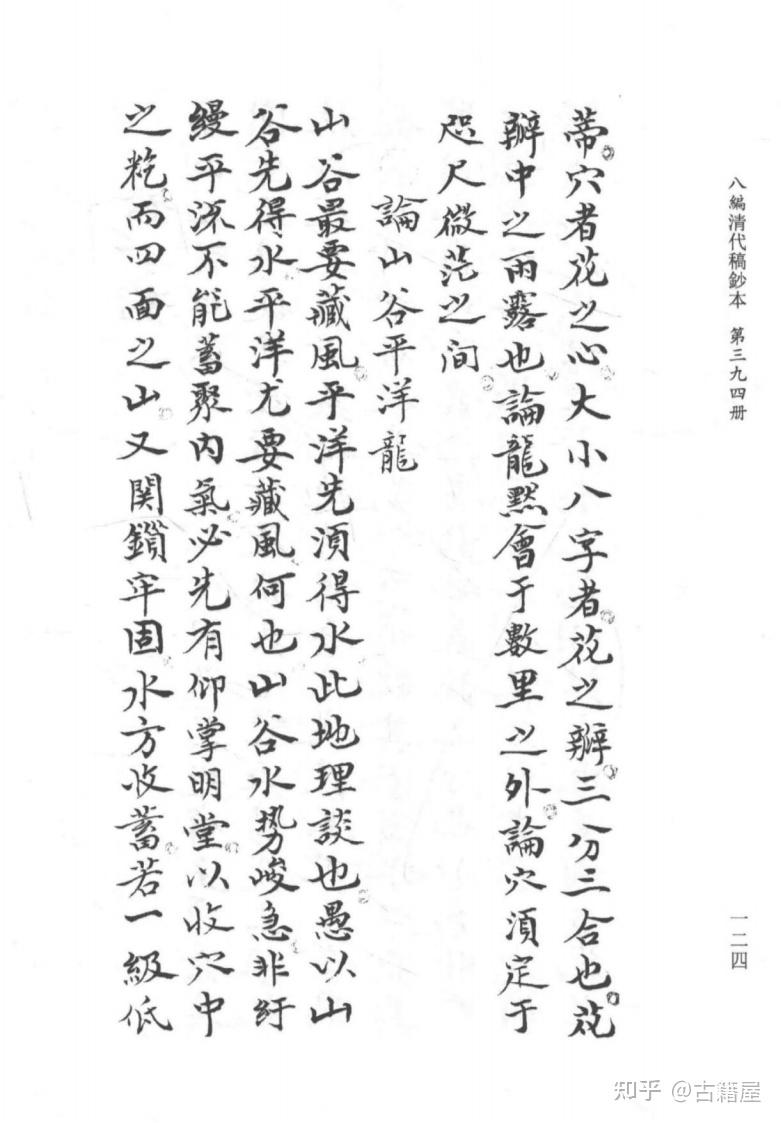 八編清代稿鈔本　第三九四册
一二四
蒂穴者花之心大小八字者花之瓣三分三合也花
瓣中之雨露也論龍默會于數里之外論穴須定于
咫尺微茫之间
論山谷平洋龍
山谷最要藏風平洋先須得水此地理談也愚以山
谷先得水平洋尤要藏風何也山谷水势峻急非紆
縵平流不能蓄聚内氣必先有仰掌明堂以收穴中
之乾而四面之山又関鎖牢固水方收蓄若一級低
知乎 @古籍屋